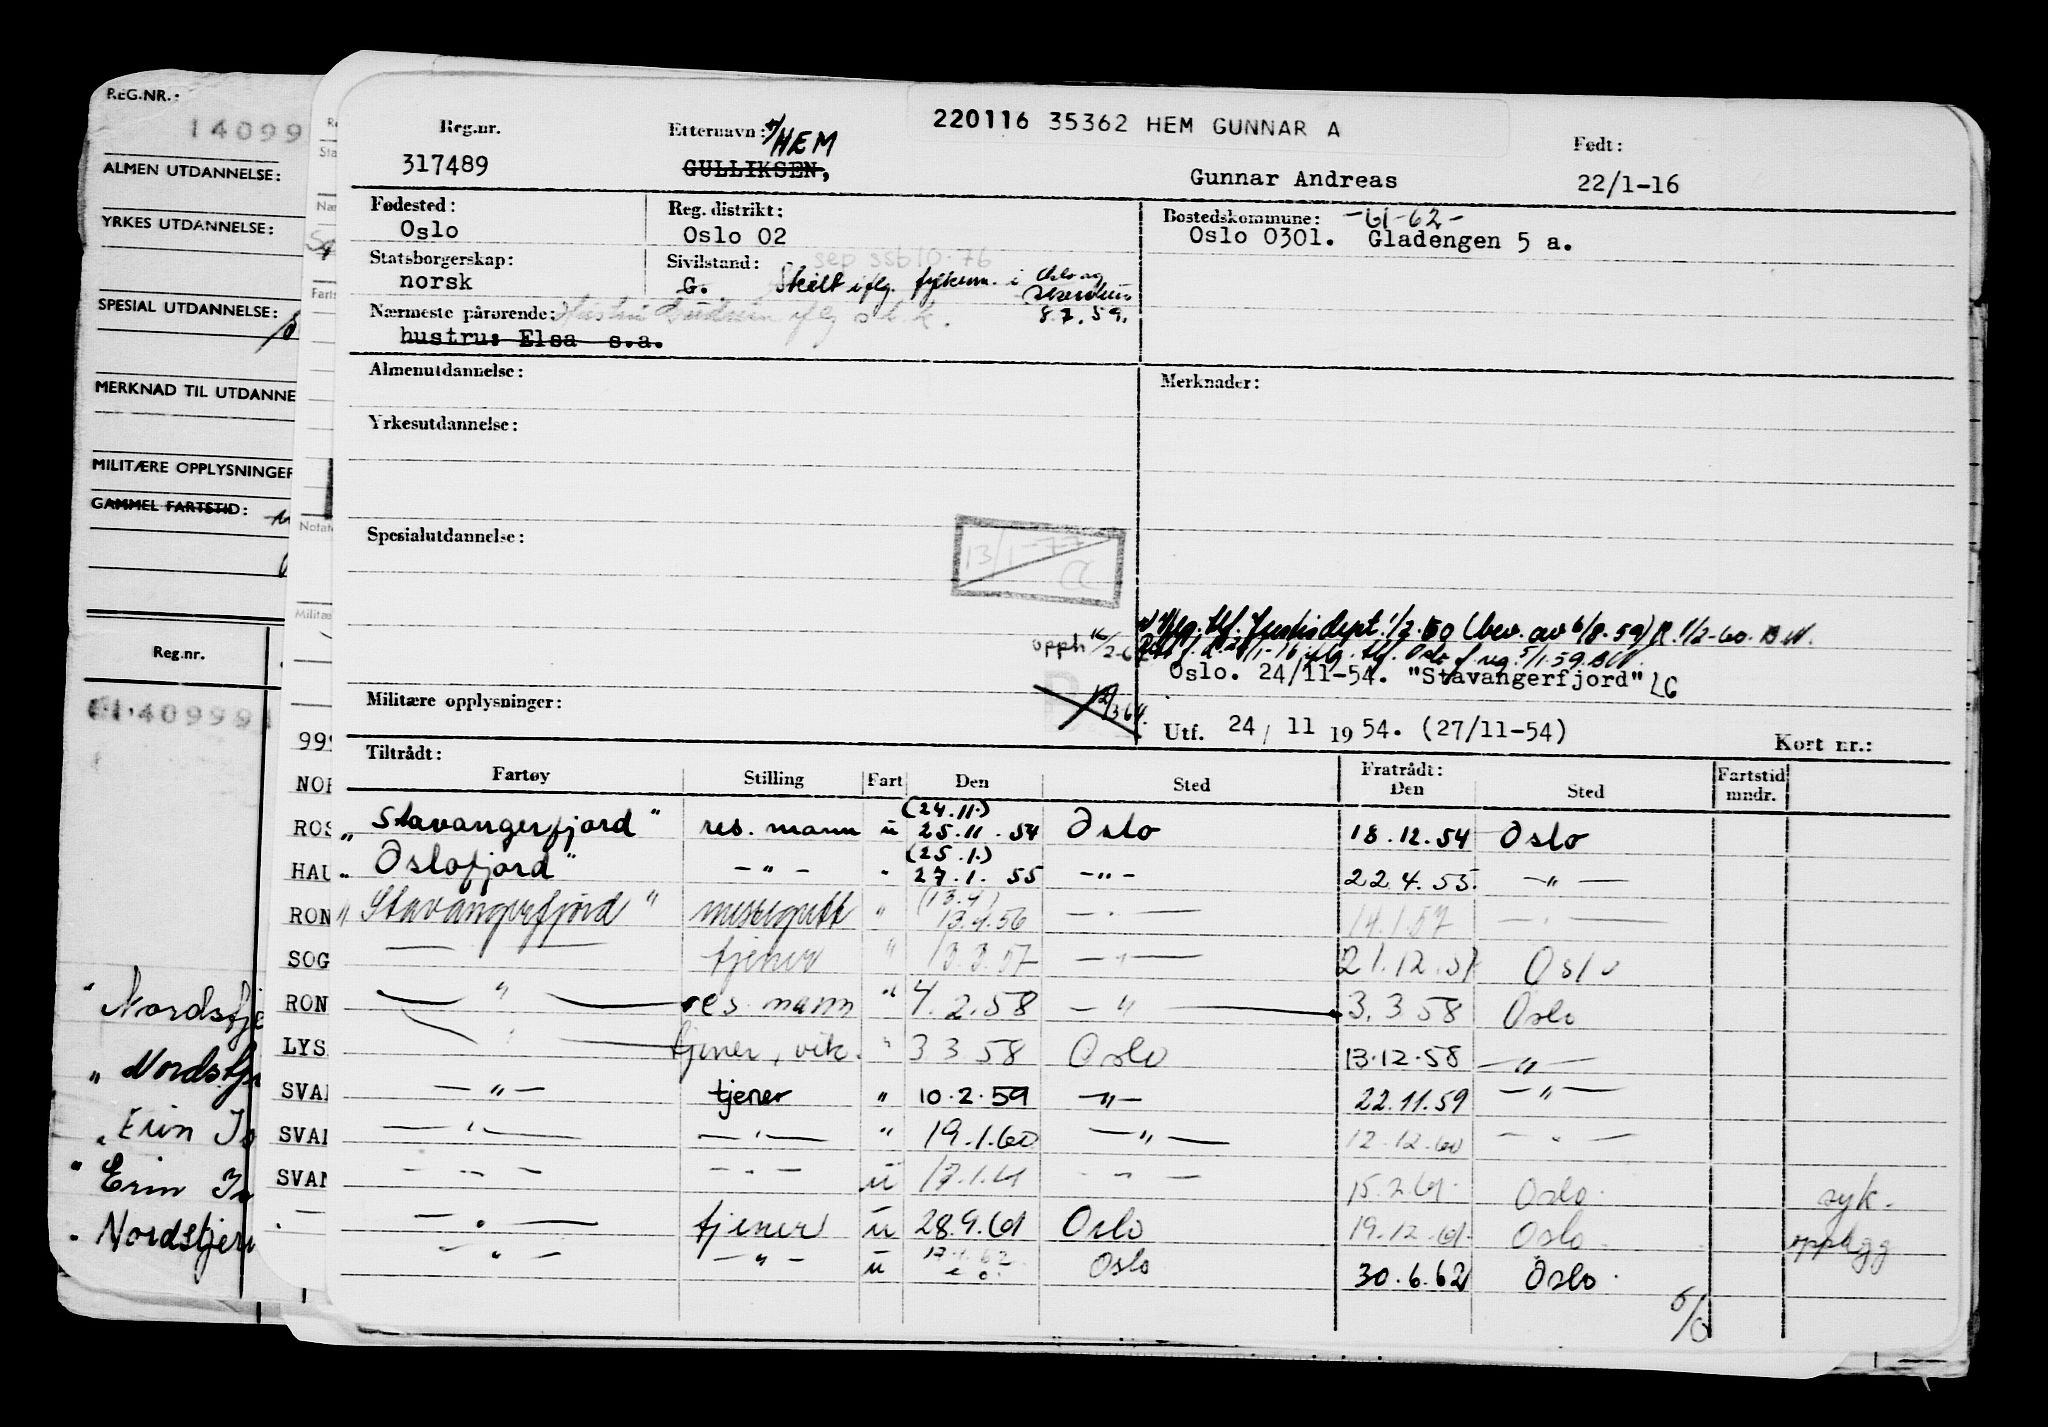 REG.NR.:
14099
ALMEN UTDANNELSE:
YRKES UTDANNELSE:
SPESIAL UTDANNELSE:
MERKNAD TIL UTDANNE
MILITÆRE OPPLYSNINGER
GAMMEL FARTSTID:
Reg.nr.
1409991
" Nordstje
" Nordstje
" Erin
" Erin
" Nordstjern
999
NOR
ROS
HAU
RON
SOG
RON
LYS
SVAN
SVAN
SVAN
220116 35362 HEM GUNNAR A
Reg.nr. Etternavn: HEM Født:
317489 GULLIKSEN, Gunnar Andreas 22/1-16
Fødested: Reg. distrikt: Bostedskommune: -61-62-
Oslo Oslo 02 Oslo 0301. Gladengen 5 a.
Statsborgerskap: Sivilstand: sep ssb 10.76
norsk G. Skilt iflg. fylkesm. i Oslo og Akershus 8.7.59.
Nærmeste pårørende: Hustru Gudrun iflg
hustru: Elsa s.a.
Almenutdannelse: Merknader:
Yrkesutdannelse:
Spesialutdannelse: 13/1-77
Iflg. skf. Justisdept. 1/2.60 (bev. av 6/8.59) R. 1/2-60. B.W.
iflg. skf. Oslo f.reg. 5/1.59 BW.
Oslo. 24/11-54. "Stavangerfjord" LG
Militære opplysninger: Utf. 24 / 11 1954. (27/11-54) Kort nr.:
Tiltrådt: Fratrådt: Fartstid
Fartøy Stilling Fart Den Sted Den Sted mndr.
(24.11.)
"Stavangerfjord" res. mann u 25.11.54 Oslo 18.12.54 Oslo
(25.1.)
"Oslofjord" -"- " 27.1.55 -"- 22.4.55. -"-
(13.4)
"Stavangerfjord" messegutt " 13.4.56 -"- 14.1.57 -"-
-"- tjener " 13.3.57 -"- 21.12.57 Oslo
-"- res. mann " 4.2.58 -"- 3.3.58 Oslo
-"- tjener, vik. " 3 3 58 Oslo 13.12.58 -"-
-"- tjener " 10.2.59 -"- 22.11.59 -"-
-"- -"- " 19.1.60 -"- 12.12.60 -"-
-"- -"- u 17.1.61 -"- 15.2.61. Oslo. syk.
-"- tjener u 28.9.61 Oslo 19.12.61. Oslo. opplegg
-"- -"- u 17.1.62 Oslo 30.6.62 Oslo.